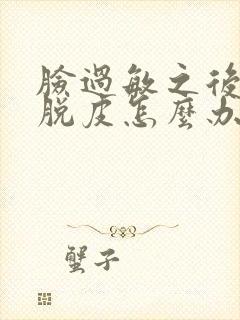 臉過敏之後
脫皮怎麼办
蟹子